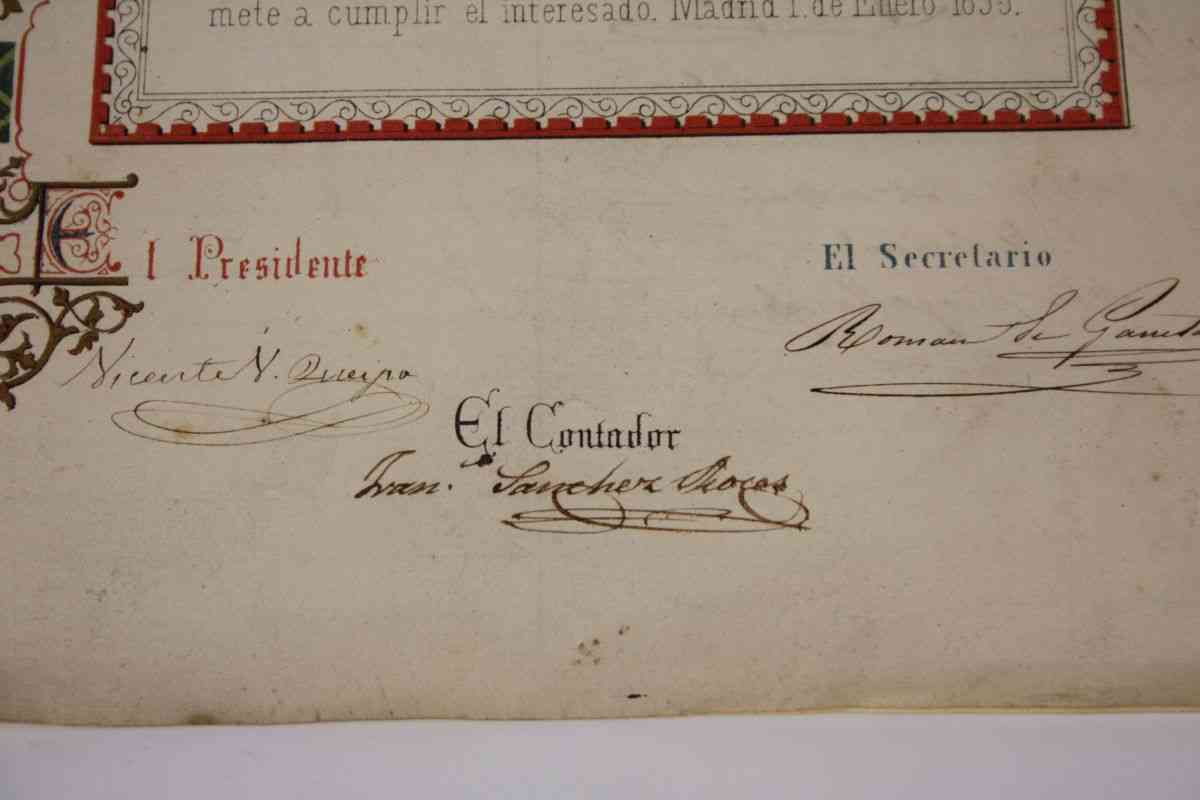 mete a cumplir el interesado. Madrid 1. de Enero
El Presidente
El Secretario
Vicente V. Queipo
Roman de
El Contador
Fran.º Sanchez Roces